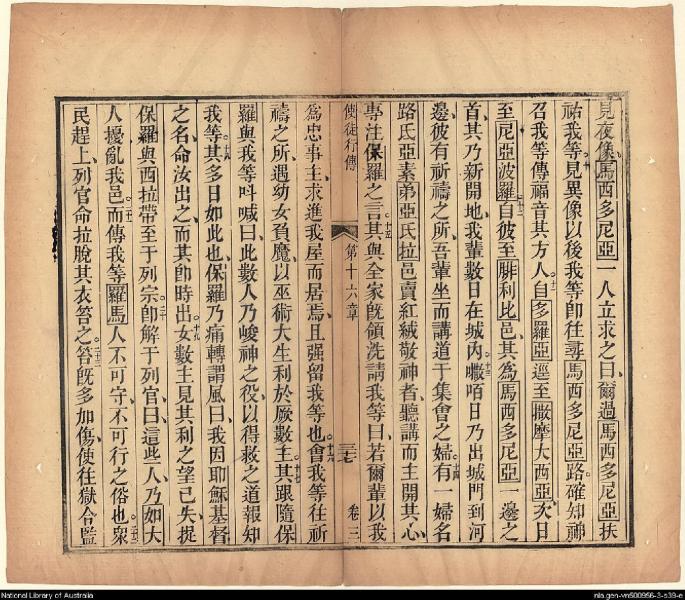 見夜像馬西多尼亞一人立求之曰爾過馬西多尼亞扶
祐我等見異像以後我等卽往尋馬西多尼亞路確知神
召我等傳福音其方人十一自多羅亞逕至撒摩大西亞次日
至尼亞波羅十二自彼至腓利比邑其爲馬西多尼亞一邊之
首其乃新開地我輩數日在城內十三嗽咟日乃出城門到河
邊彼有祈禱之所吾輩坐而講道于集會之婦十四有一婦名
路氏亞素弟亞氏拉邑賣紅絨敬神者聽講而主開其心
專注保羅之言十五其與全家旣領洗請我等曰若爾輩以我
使徒行傳 第十六章 三七 卷三
爲忠事主求進我屋而居焉且强留我等也十六會我等往祈
禱之所遇幼女負魔以巫術大生利於厥數主十七其跟隨保
羅與我等呌喊曰此數人乃峻神之役以得救之道報知
我等十八其多日如此也保羅乃痛轉謂風曰我因耶穌基督
之名命汝出之而其卽時出十九女數主見其利之望已失捉
保羅與西拉帶至于列宗二十卽解于列官曰這些人乃如大
人擾亂我邑二一而傳我等羅馬人不可守不可行之俗也二二衆
民趕上列官命拉脫其衣笞之二三笞旣多加傷使往獄合監
National Library of Australia
nla.gen-vn500956-3-s39-e